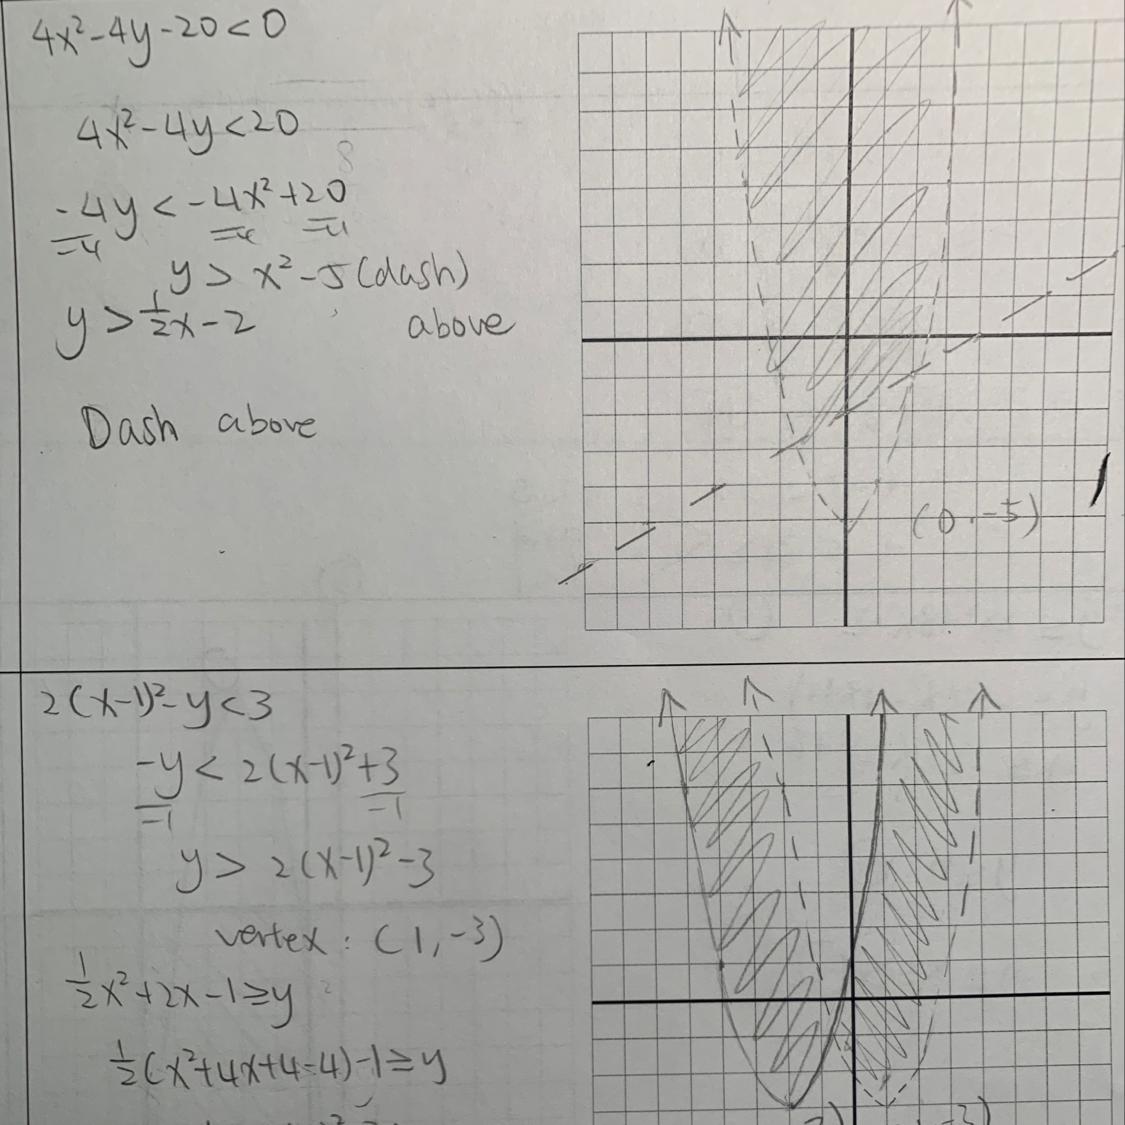 4x²-4y-20<0
4x²-4y<20
-4y<-4x²+20
-4 -4 -4
y>x²-5(dash)
y>½x-2 above
Dash above
(0,-5)
2(x-1)²-y<3
-y<2(x-1)²+3
-1 -1
y>2(x-1)²-3
vertex: (1,-3)
½x²+2x-1≥y
½(x²+4x+4-4)-1≥y